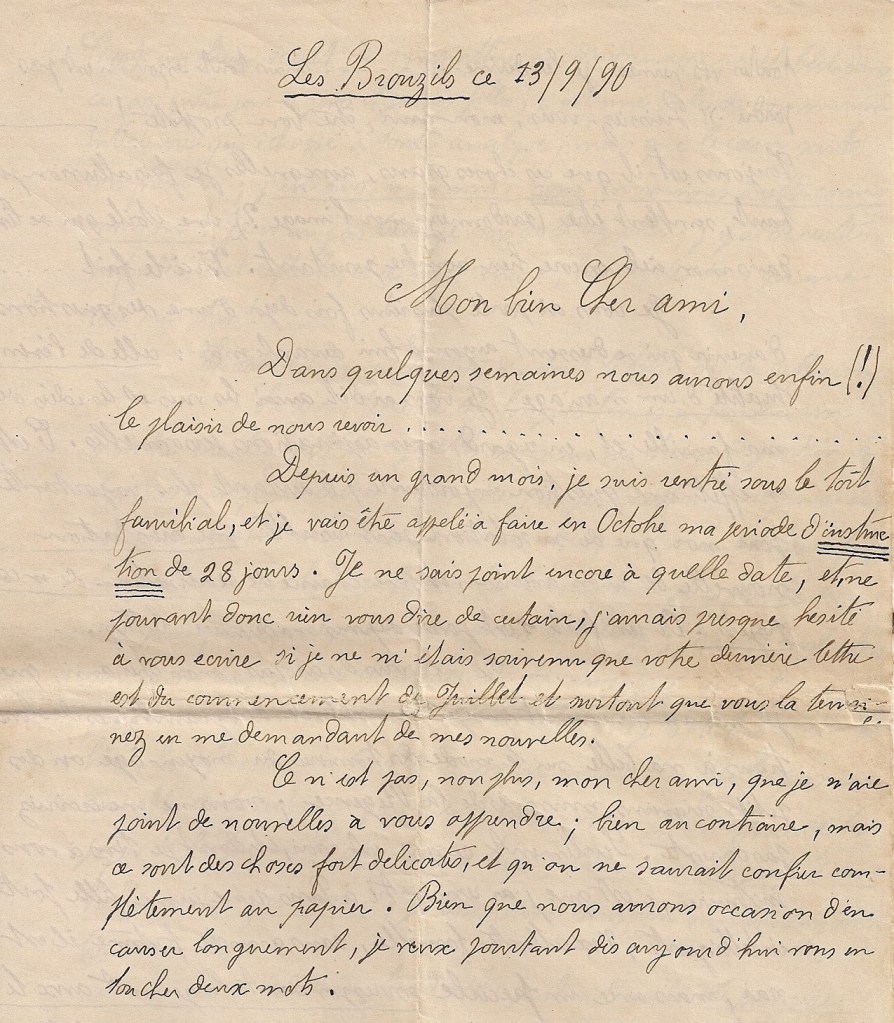 Les Brouzils ce 13/9/90
Mon bien Cher ami,
Dans quelques semaines nous aurons enfin (!)
le plaisir de nous revoir . . . . . . . . . . . . . . . . . . . . . . . .
Depuis un grand mois, je suis rentré sous le toit
familial, et je vais être appelé à faire en Octobre ma periode d'instruc
tion de 28 jours. Je ne sais point encore à quelle date, et, ne
pouvant donc rien vous dire de certain, j'aurais presque hesité
à vous ecrire si je ne m'étais souvenu que votre dernière lettre
est du commencement de Juillet et surtout que vous la termi-
nez en me demandant de mes nouvelles.
Ce n'est pas, non plus, mon cher ami, que je n'aie
point de nouvelles à vous apprendre ; bien au contraire, mais
ce sont des choses fort delicates, et qu'on ne saurait confier com-
plètement au papier. Bien que nous aurons occasion d'en
causer longuement, je veux pourtant dès aujourd'hui vous en
toucher deux mots.